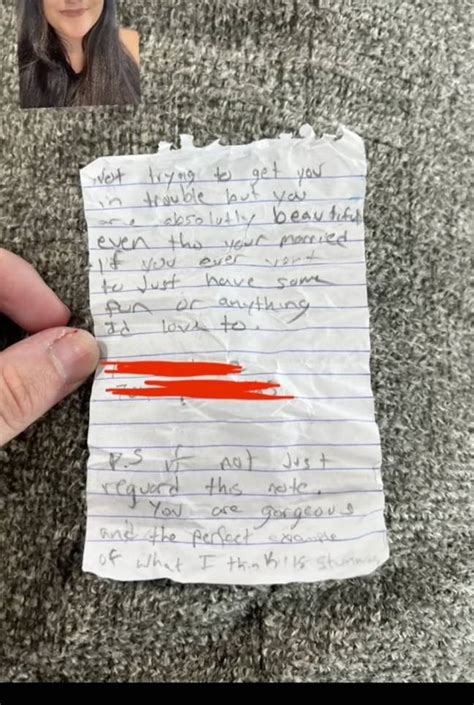 Not trying to get you
in trouble but you
are absolutly beautiful
even tho your married
If you ever want
to Just have some
fun or anything
Id love to.
P.S if not Just
reguard this note.
You are gorgeous
and the perfect example
of what I think is stunning